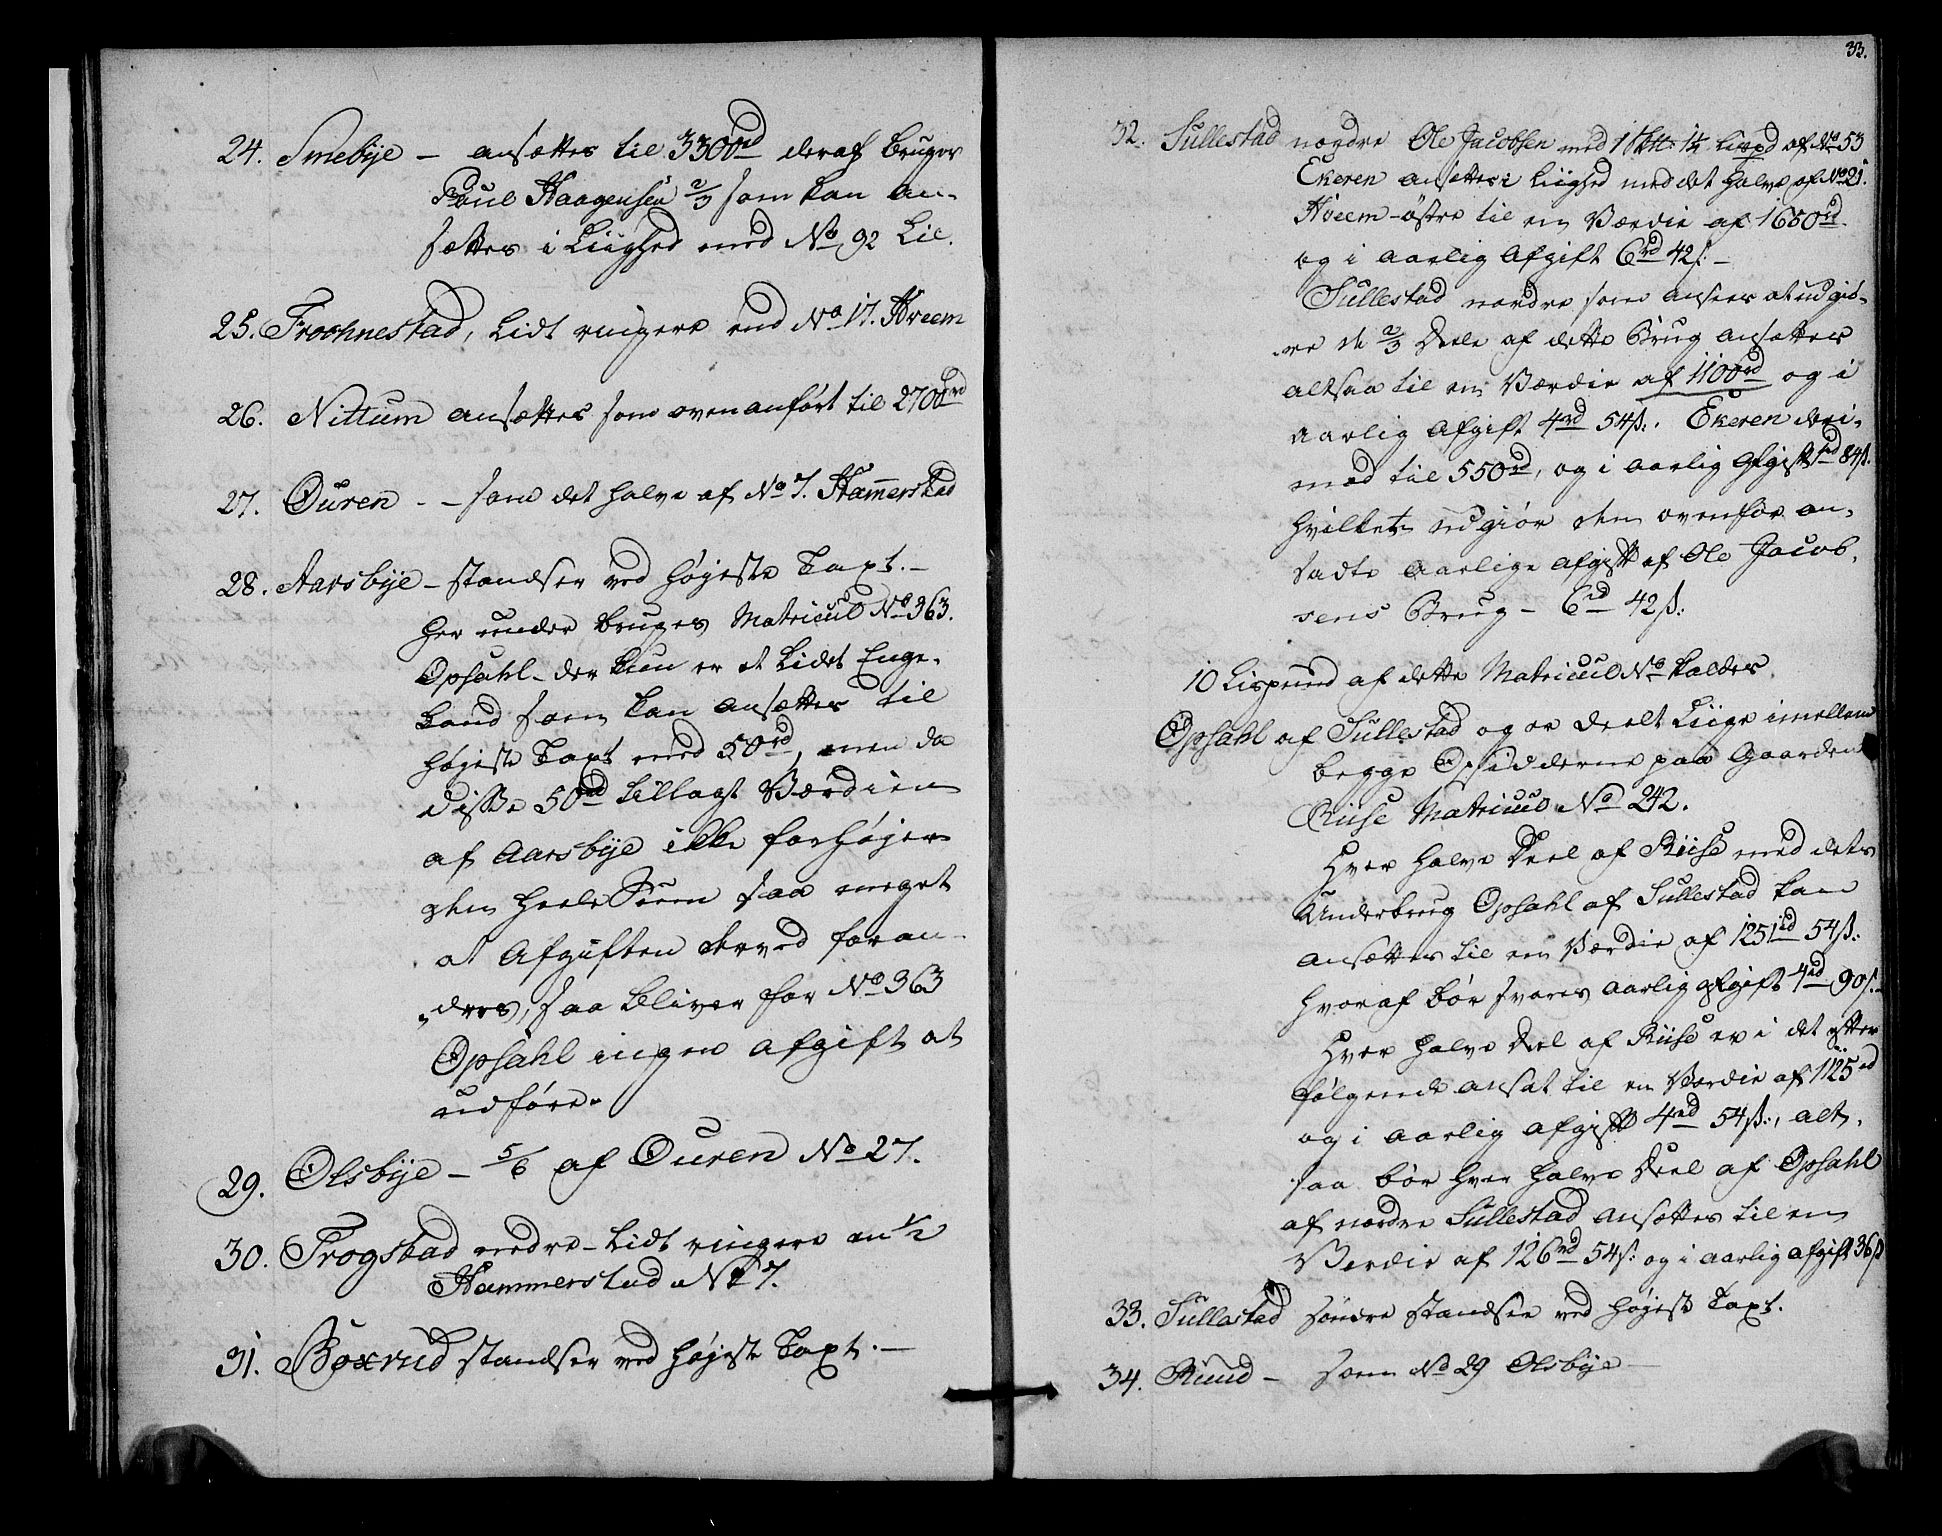 24. Smebÿe – ansættes til 3300rd deraf bruger
Poul Haagensen 2/3 som kan an-
sættes i Liighed med No 92 Lie.
25. Frochnestad, Lidt ringere end No 17. Hveem
26. Nittum ansættes som ovenanført til 2700rd
27. Ouren - - som det halve af No 7. Hammerstad
28. Aarsbÿe – standser ved højeste Taxt. –
her under bruges Matricul No 363.
Opsahl – der kun er et Lidet Enge-
Land som kan ansættes til
højeste Taxt med 50rd, men da
disse 50rd tillagt Værdien
af Aarsbÿe ikke forhøjer
den heele Sum saa meget
at Afgiften derved foran-
dres, saa bliver for No 363
Opsahl ingen afgift at
udføre.
29. Olsbÿe – 5/6 af Ouren No 27.
30. Frogstad nedre – Lidt ringere en 1/2
Hammerstad No 7.
31. Boxrud standser ved højeste Taxt. –
33.
32. Sullestad nordre Ole Jacobsen med 1 Skt: 1 1/2 Lispd af No 53
Ekeren ansættes i Liighed med det halve af No 21.
Hveem-østre til en Værdie af 1650rd
og i aarlig Afgift 6rd 42 s: –
Sullestad nordre som ansees at udgiø-
re de 2/3 Deele af dette Brug ansættes
altsaa til en Værdie af 1100rd og i
aarlig Afgift 4rd 54 s:. Ekeren deri-
mod til 550rd, og i aarlig Afgift 1rd 84 s.
hvilket udgiør den ovenfor an-
sadte aarlige Afgift af Ole Jacob-
sens Brug – 6rd 42 s:
10 Lispund af dette Matricul No kaldes
Opsahl af Sullestad og er deelt Liige imellem
begge Opsidderne paa Gaarden
Riise Matricul No 242.
Hver halve Deel af Riise med dets
Underbrug Opsahl af Sullestad kan
ansættes til en Værdie af 1251rd 54 s:
hvoraf bør svares aarlig afgift 4rd 90 s. –
Hver halve Deel af Riise er i det efter
følgende ansat til en Værdie af 1125rd
og i aarlig afgift 4rd 54 s:, alt-
saa bør hver halve Deel af Opsahl
af nordre Sullestad ansættes til en
Værdie af 126rd 54 s: og i aarlig afgift 36 s
33. Sullestad søndre standser ved højest Taxt.
34. Ruud – som No 29 Olsbÿe –